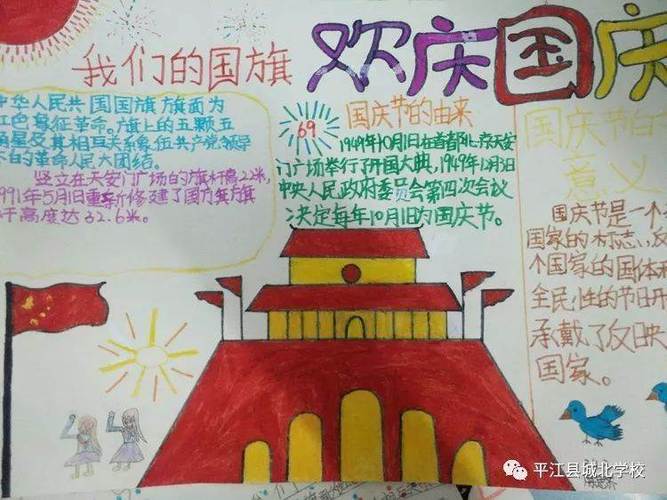 我们的国旗
欢庆国庆
中华人民共国国旗旗面为
红色象征革命。旗上的五颗五
角星及其相互关系象征共产党领导
下的革命人民大团结。
竖立在天安门广场的旗杆高22米,
991年5月1日重新修建了国旗旗
杆高度达32.6米。
69
国庆节的由来
1949年10月1日在首都北京天安
门广场举行了开国大典,1949年12月3日
中央人民政府委员会第四次会议
决定每年10月1日为国庆节。
国庆节的
意义
国庆节是一个
国家的标志
个国家的国体
全民性的节日
承戴了反映
国家。
平江县城北学校